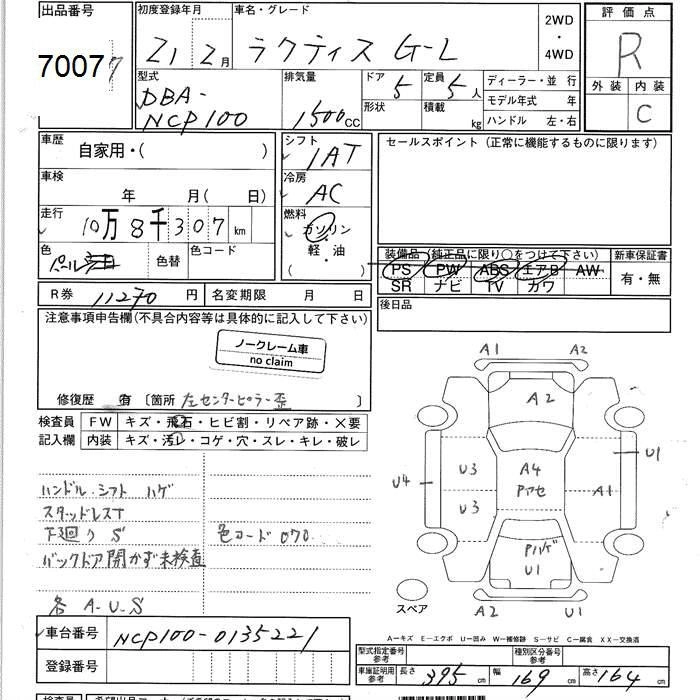 出品番号 初度登録年月 車名・グレード 2WD・4WD 評価点
70077 21 2月 ラクティス G-L R
型式 排気量 ドア 5 定員 5人 ディーラー・並行 外装 内装
DBA-NCP100 1500CC 形状 積載 kg モデル年式 年 C
ハンドル 左・右
車歴 自家用・( ) シフト 1AT セールスポイント(正常に機能するものに限ります)
車検 年 月( 日) 冷房 AC
走行 10万8千307km 燃料 ガソリン・軽・油 ( )
色 パール 色替 色コード 装備品(純正品に限り○をつけて下さい) 新車保証書
PS PW ABS エアB AW 有・無
SR ナビ TV カワ
R券 11270円 名変期限 月 日 後日品
注意事項申告欄(不具合内容等は具体的に記入して下さい)
ノークレーム車
no claim
修復歴 有 〔箇所 左センターピラー歪 〕
検査員 FW キズ・飛石・ヒビ割・リペア跡・×要
記入欄 内装 キズ・汚レ・コゲ・穴・スレ・キレ・破レ
ハンドル.シフト ハゲ
スタッドレスT
下回り S 色コード 070
バックドア開かず未検査
各 A-U-S
A1 A2
A2
U4 U3 A4 U1
U3 Pアセ A1
Pハゲ
U1
スペア A2 U1
A-キズ E-エクボ U-凹み W-補修跡 S-サビ C-腐食 XX-交換済
車台番号 NCP100-0135221
登録番号
型式指定番号 参考 種別区分番号 参考
車庫証明用 参考 長さ 395cm 幅 169cm 高さ 164cm